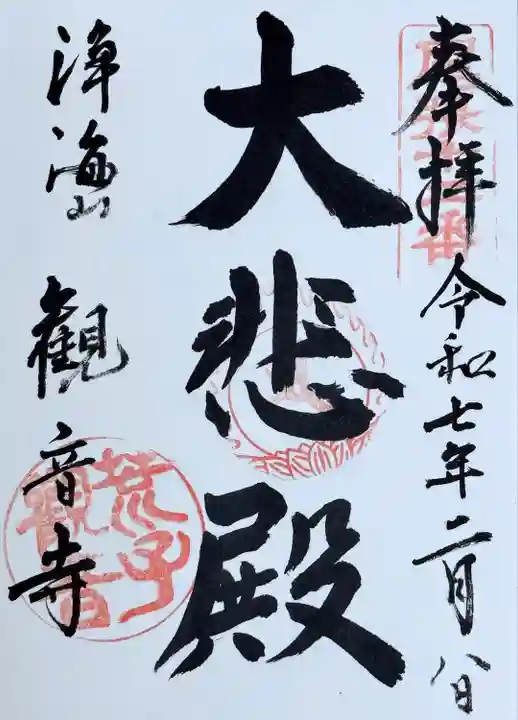 奉拝 令和七年二月八日
大悲殿
浄海山 観音寺
荒子観音